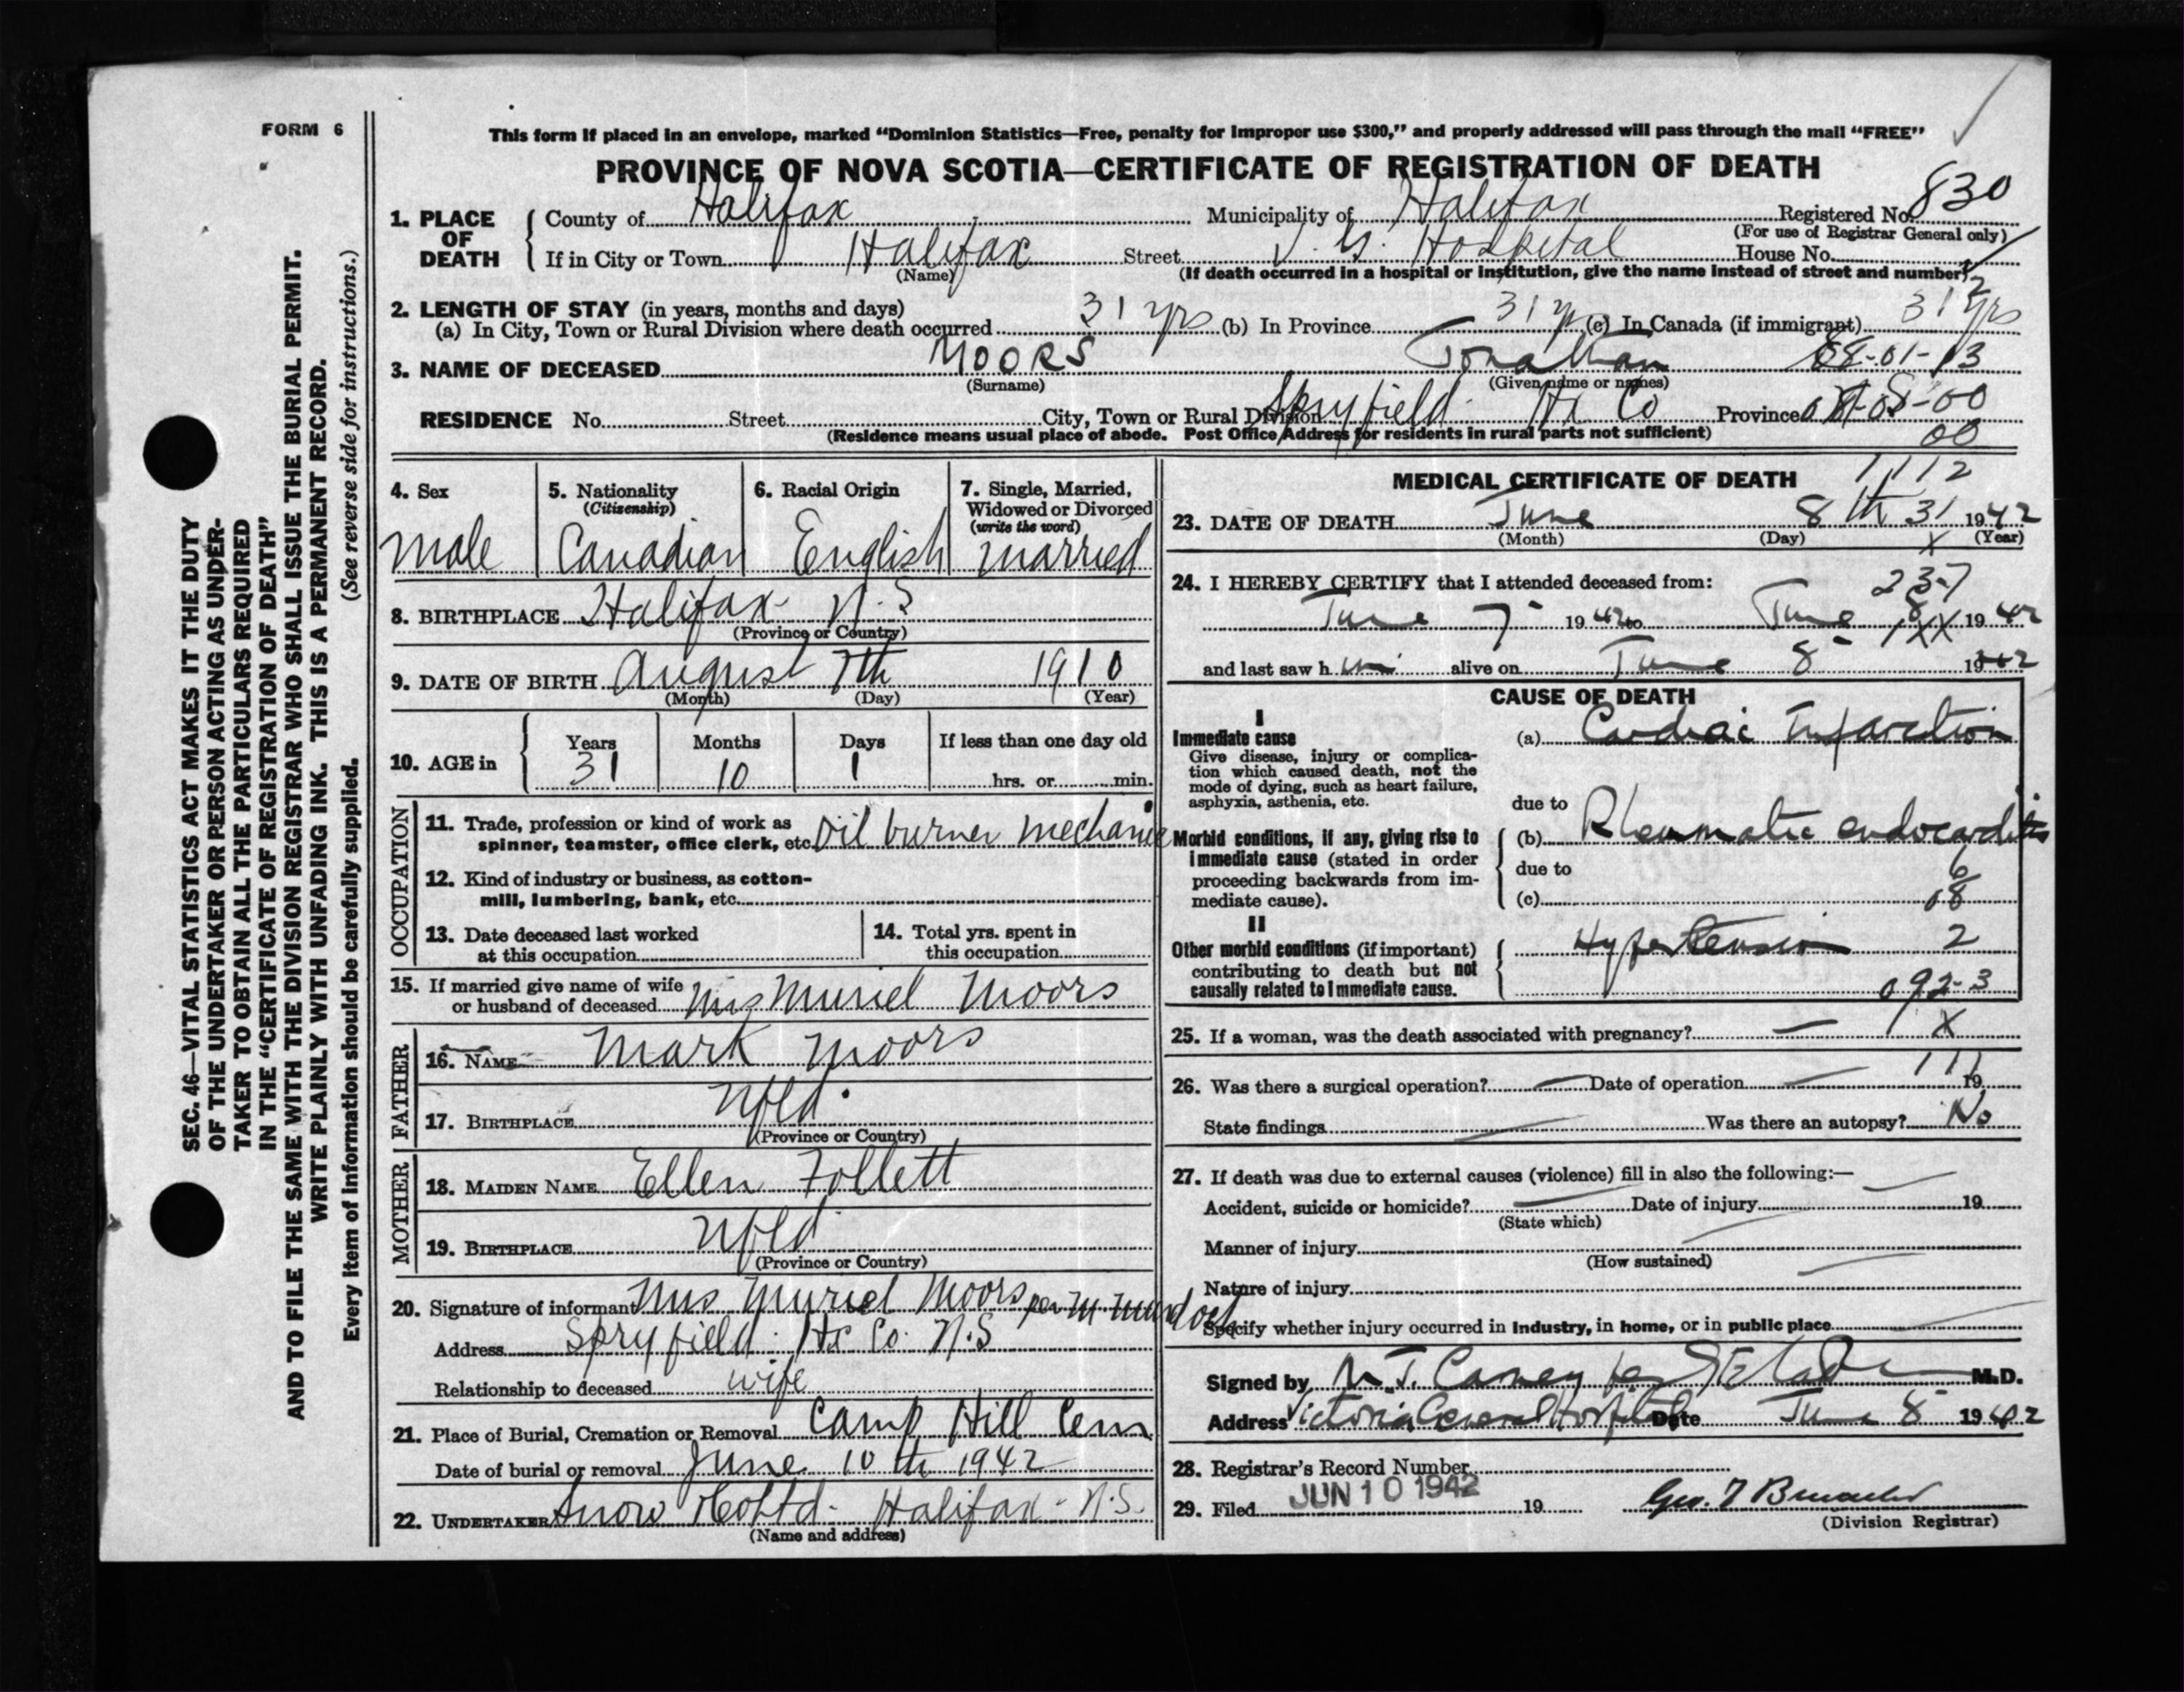 FORM 6
This form if placed in an envelope, marked “Dominion Statistics—Free, penalty for improper use $300,” and properly addressed will pass through the mail “FREE”
PROVINCE OF NOVA SCOTIA—CERTIFICATE OF REGISTRATION OF DEATH
1. PLACE OF DEATH County of Halifax Municipality of Halifax Registered No. 830
(For use of Registrar General only)
If in City or Town Halifax Street V. G. Hospital House No.
(Name) (If death occurred in a hospital or institution, give the name instead of street and number)
2. LENGTH OF STAY (in years, months and days)
(a) In City, Town or Rural Division where death occurred 31 yrs (b) In Province 31 yrs (c) In Canada (if immigrant) 31 yrs
3. NAME OF DECEASED MOORS Jonathan 88-01-13
(Surname) (Given name or names)
RESIDENCE No. Street City, Town or Rural Division Spryfield Hx Co Province
(Residence means usual place of abode. Post Office Address for residents in rural parts not sufficient)
00
4. Sex 5. Nationality (Citizenship) 6. Racial Origin 7. Single, Married, Widowed or Divorced (write the word)
Male Canadian English married
8. BIRTHPLACE Halifax N.S
(Province or Country)
9. DATE OF BIRTH August 7th 1910
(Month) (Day) (Year)
10. AGE in Years Months Days If less than one day old
31 10 1 hrs. or min.
OCCUPATION
11. Trade, profession or kind of work as spinner, teamster, office clerk, etc. Oil burner mechanic
12. Kind of industry or business, as cotton-mill, lumbering, bank, etc.
13. Date deceased last worked at this occupation
14. Total yrs. spent in this occupation
15. If married give name of wife or husband of deceased Mrs Muriel Moors
FATHER
16. NAME Mark Moors
17. BIRTHPLACE Nfld.
(Province or Country)
MOTHER
18. MAIDEN NAME Ellen Follett
19. BIRTHPLACE Nfld
(Province or Country)
20. Signature of informant Mrs Muriel Moors per M Murdoch
Address Spryfield Hx Co. N.S
Relationship to deceased wife
21. Place of Burial, Cremation or Removal Camp Hill Cem
Date of burial or removal June 10th 1942
22. UNDERTAKER Snow & Co Ltd - Halifax - N.S.
(Name and address)
MEDICAL CERTIFICATE OF DEATH 1112
23. DATE OF DEATH June 8th 31 1942
(Month) (Day) (Year)
X
24. I HEREBY CERTIFY that I attended deceased from:
237
June 7 1942 to June 8 1942
and last saw him alive on June 8 1942
CAUSE OF DEATH
I
Immediate cause
Give disease, injury or complication which caused death, not the mode of dying, such as heart failure, asphyxia, asthenia, etc.
(a) Cardiac Infarction
due to
Morbid conditions, if any, giving rise to immediate cause (stated in order proceeding backwards from immediate cause).
(b) Rheumatic endocarditis
due to 6
(c) 08
II
Other morbid conditions (if important) contributing to death but not causally related to immediate cause.
Hypertension 2
092-3
25. If a woman, was the death associated with pregnancy? — X
26. Was there a surgical operation? — Date of operation — 111 19
State findings — Was there an autopsy? No
27. If death was due to external causes (violence) fill in also the following:—
Accident, suicide or homicide? — Date of injury 19
(State which)
Manner of injury
(How sustained)
Nature of injury
Specify whether injury occurred in industry, in home, or in public place
Signed by M.D.
Address Victoria General Hospital Date June 8 1942
28. Registrar's Record Number
29. Filed JUN 10 1942 19 Geo.
(Division Registrar)
SEC. 46—VITAL STATISTICS ACT MAKES IT THE DUTY
OF THE UNDERTAKER OR PERSON ACTING AS UNDER-
TAKER TO OBTAIN ALL THE PARTICULARS REQUIRED
IN THE “CERTIFICATE OF REGISTRATION OF DEATH”
AND TO FILE THE SAME WITH THE DIVISION REGISTRAR WHO SHALL ISSUE THE BURIAL PERMIT.
WRITE PLAINLY WITH UNFADING INK. THIS IS A PERMANENT RECORD.
Every item of information should be carefully supplied. (See reverse side for instructions.)